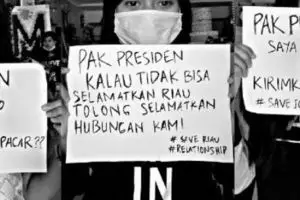 M
PAK PRESIDEN
KALAU TIDAK BISA
SELAMATKAN RIAU
TOLONG SELAMATKAN
HUBUNGAN KAMI
# SAVE RIAU
#RELATIONSHIP
IN
PACAR??
PAK
SAYA
KIRIMK
# SAVE